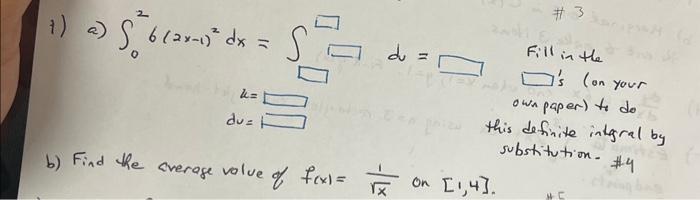 # 3
1) a) ∫₀² 6(2x-1)² dx = ∫ □ du = □
u = □
du = □
Fill in the
□'s (on your
own paper) to do
this definite integral by
substitution. #4
b) Find the average value of f(x) = 1/√x on [1,4].